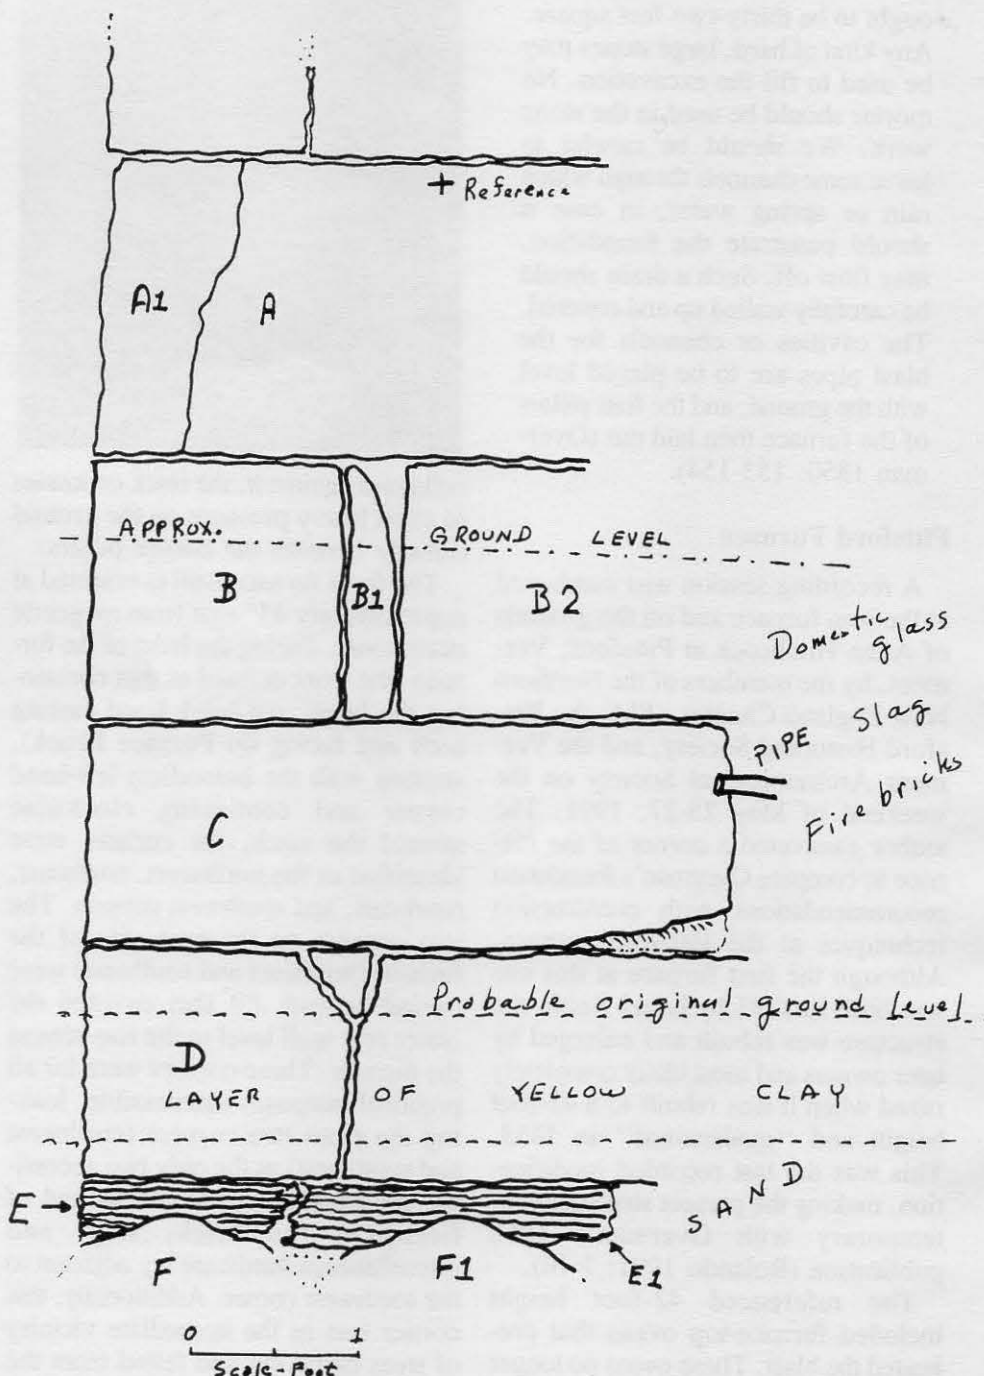 + Reference
A1 A
APPROX. GROUND LEVEL
B B1 B2
Domestic glass
Slag
PIPE
Fire bricks
C
Probable original ground level
D
LAYER OF YELLOW CLAY
SAND
E
F F1 E1
0 1
Scale-Foot